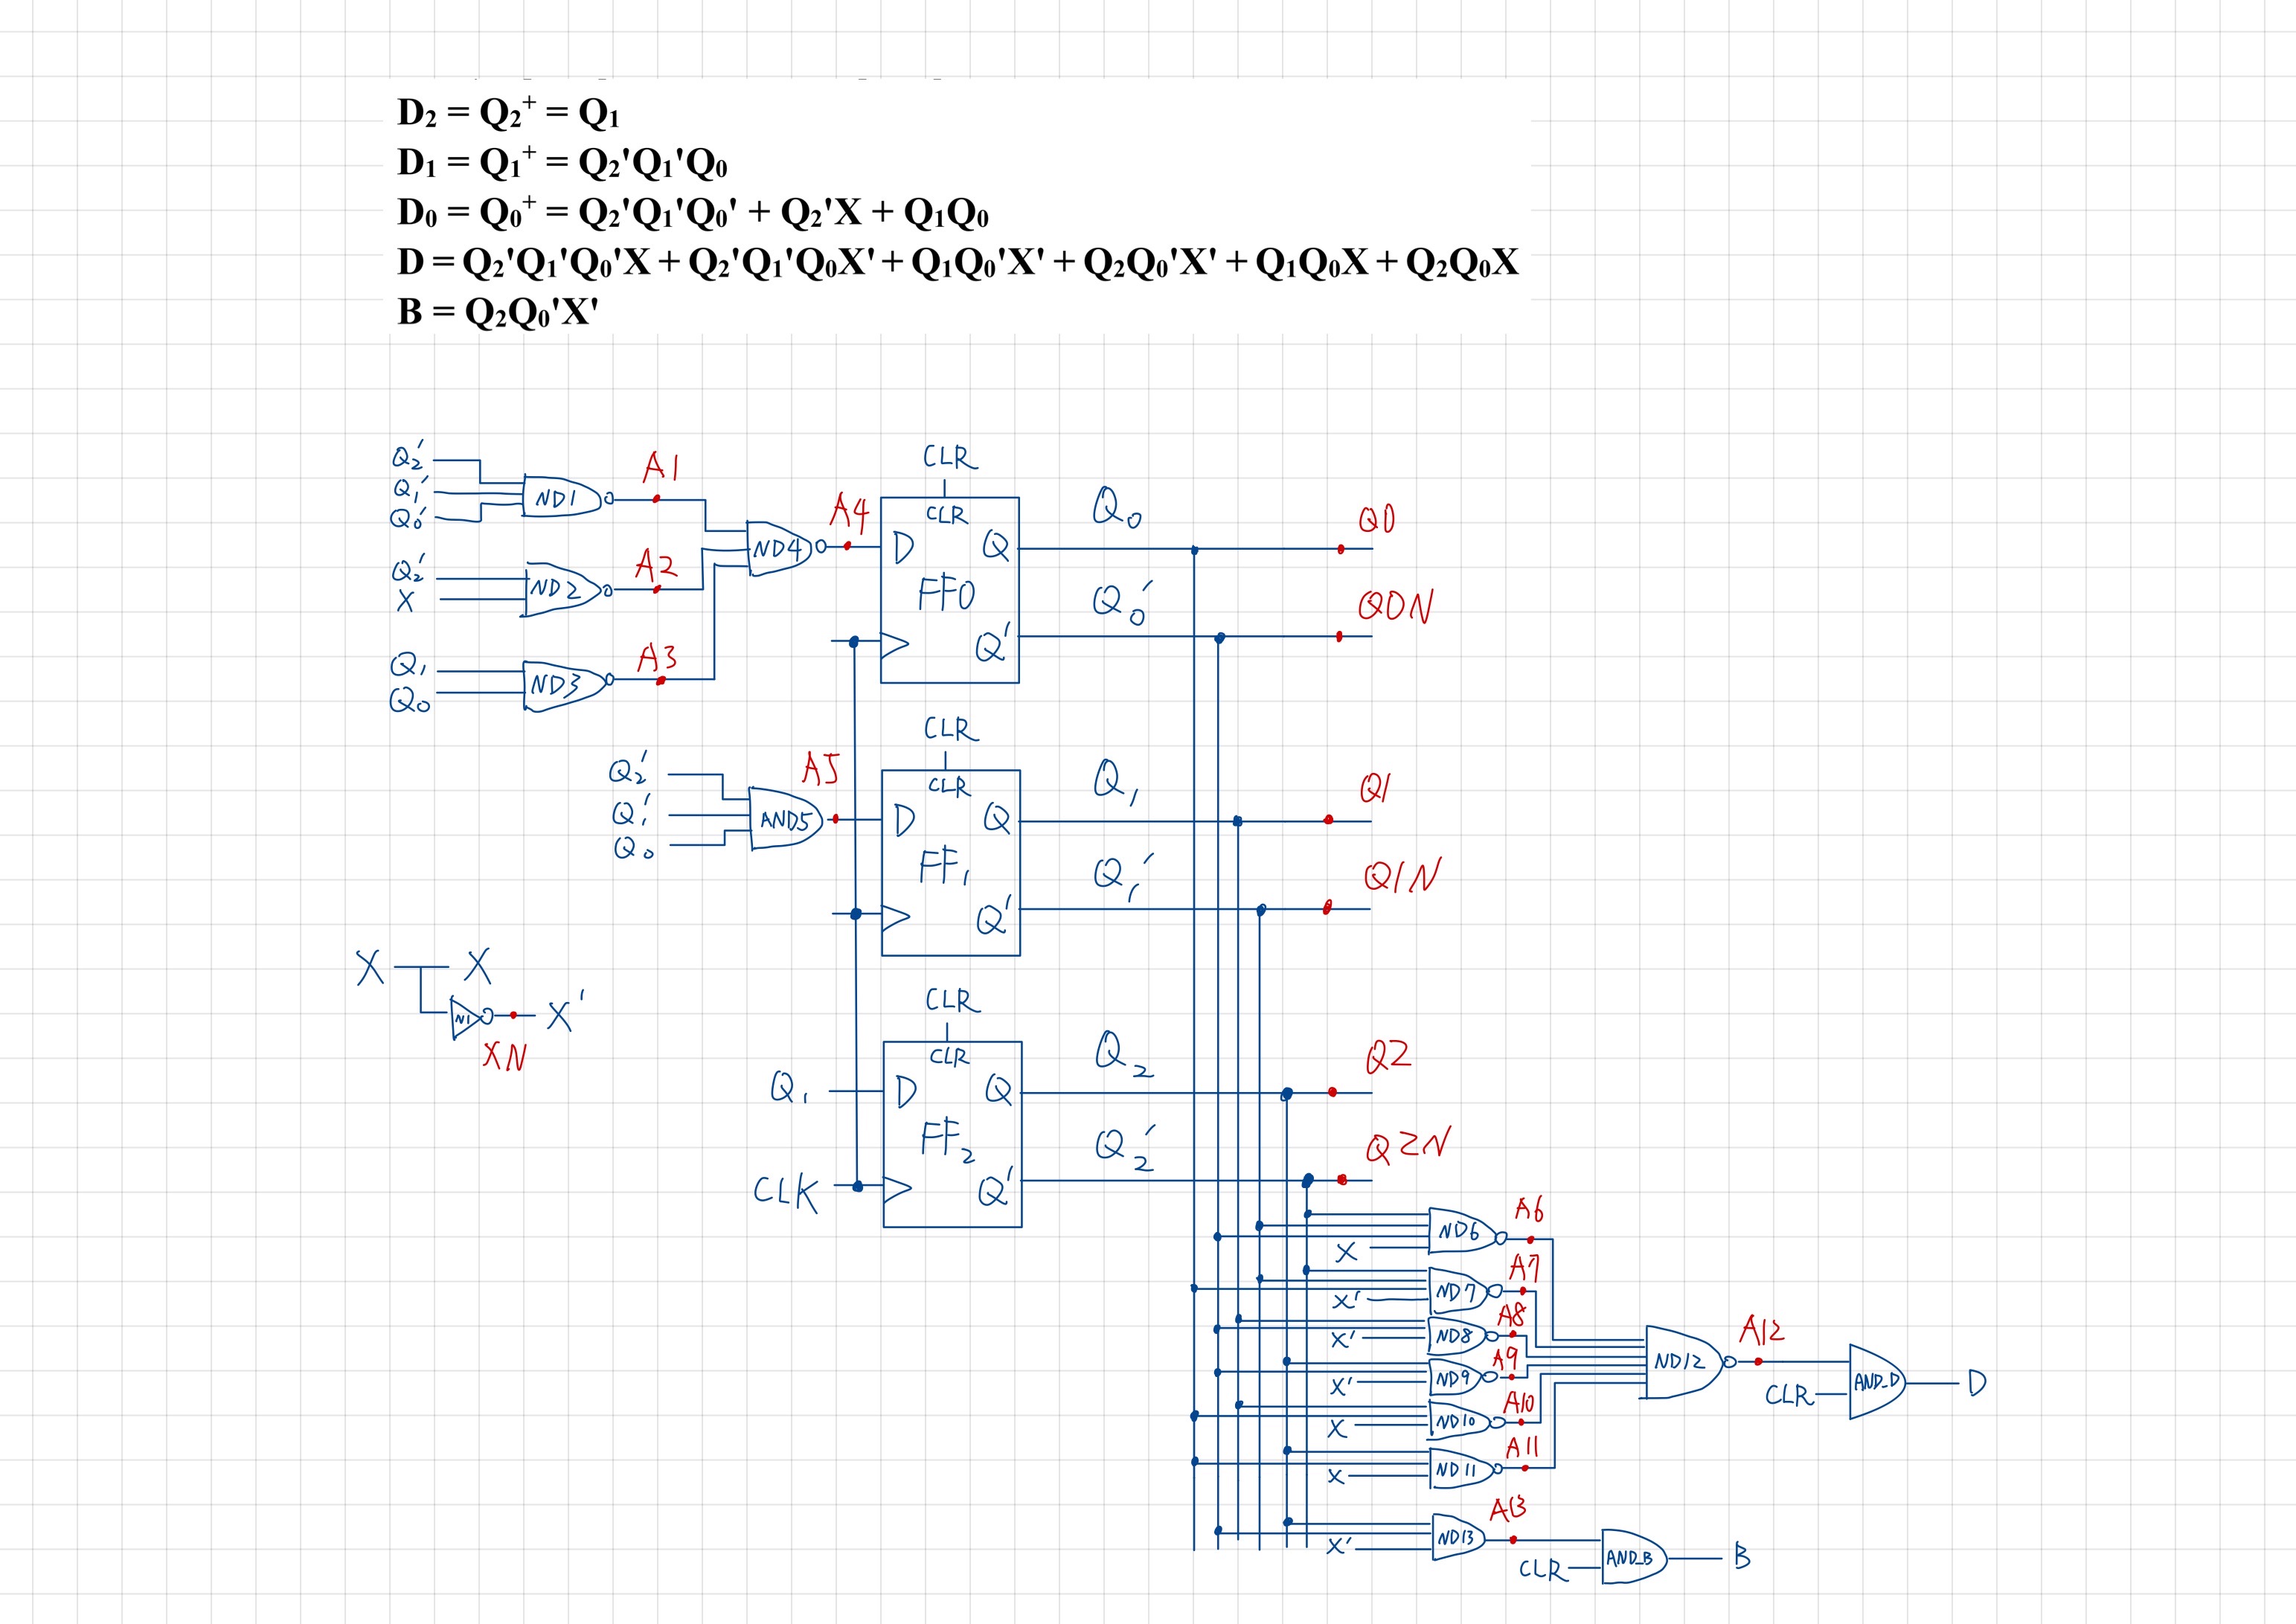 D₂ = Q₂⁺ = Q₁
D₁ = Q₁⁺ = Q₂'Q₁'Q₀
D₀ = Q₀⁺ = Q₂'Q₁'Q₀' + Q₂'X + Q₁Q₀
D = Q₂'Q₁'Q₀'X + Q₂'Q₁'Q₀X' + Q₁Q₀'X' + Q₂Q₀'X' + Q₁Q₀X + Q₂Q₀X
B = Q₂Q₀'X'
Q₂'
Q₁'
Q₀'
ND1
A1
Q₂'
X
ND2
A2
Q₁
Q₀
ND3
A3
ND4
A4
CLR
CLR
D
Q
FF0
Q'
Q₀
Q0
Q₀'
Q0N
Q₂'
Q₁'
Q₀
AND5
A5
CLR
CLR
D
Q
FF₁
Q'
Q₁
Q1
Q₁'
Q1N
X
X
N1
X'
XN
Q₁
CLK
CLR
CLR
D
Q
FF₂
Q'
Q₂
Q2
Q₂'
Q2N
X
ND6
A6
X'
ND7
A7
X'
ND8
A8
X'
ND9
A9
X
ND10
A10
X
ND11
A11
ND12
A12
CLR
AND_D
D
X'
ND13
A13
CLR
AND_B
B